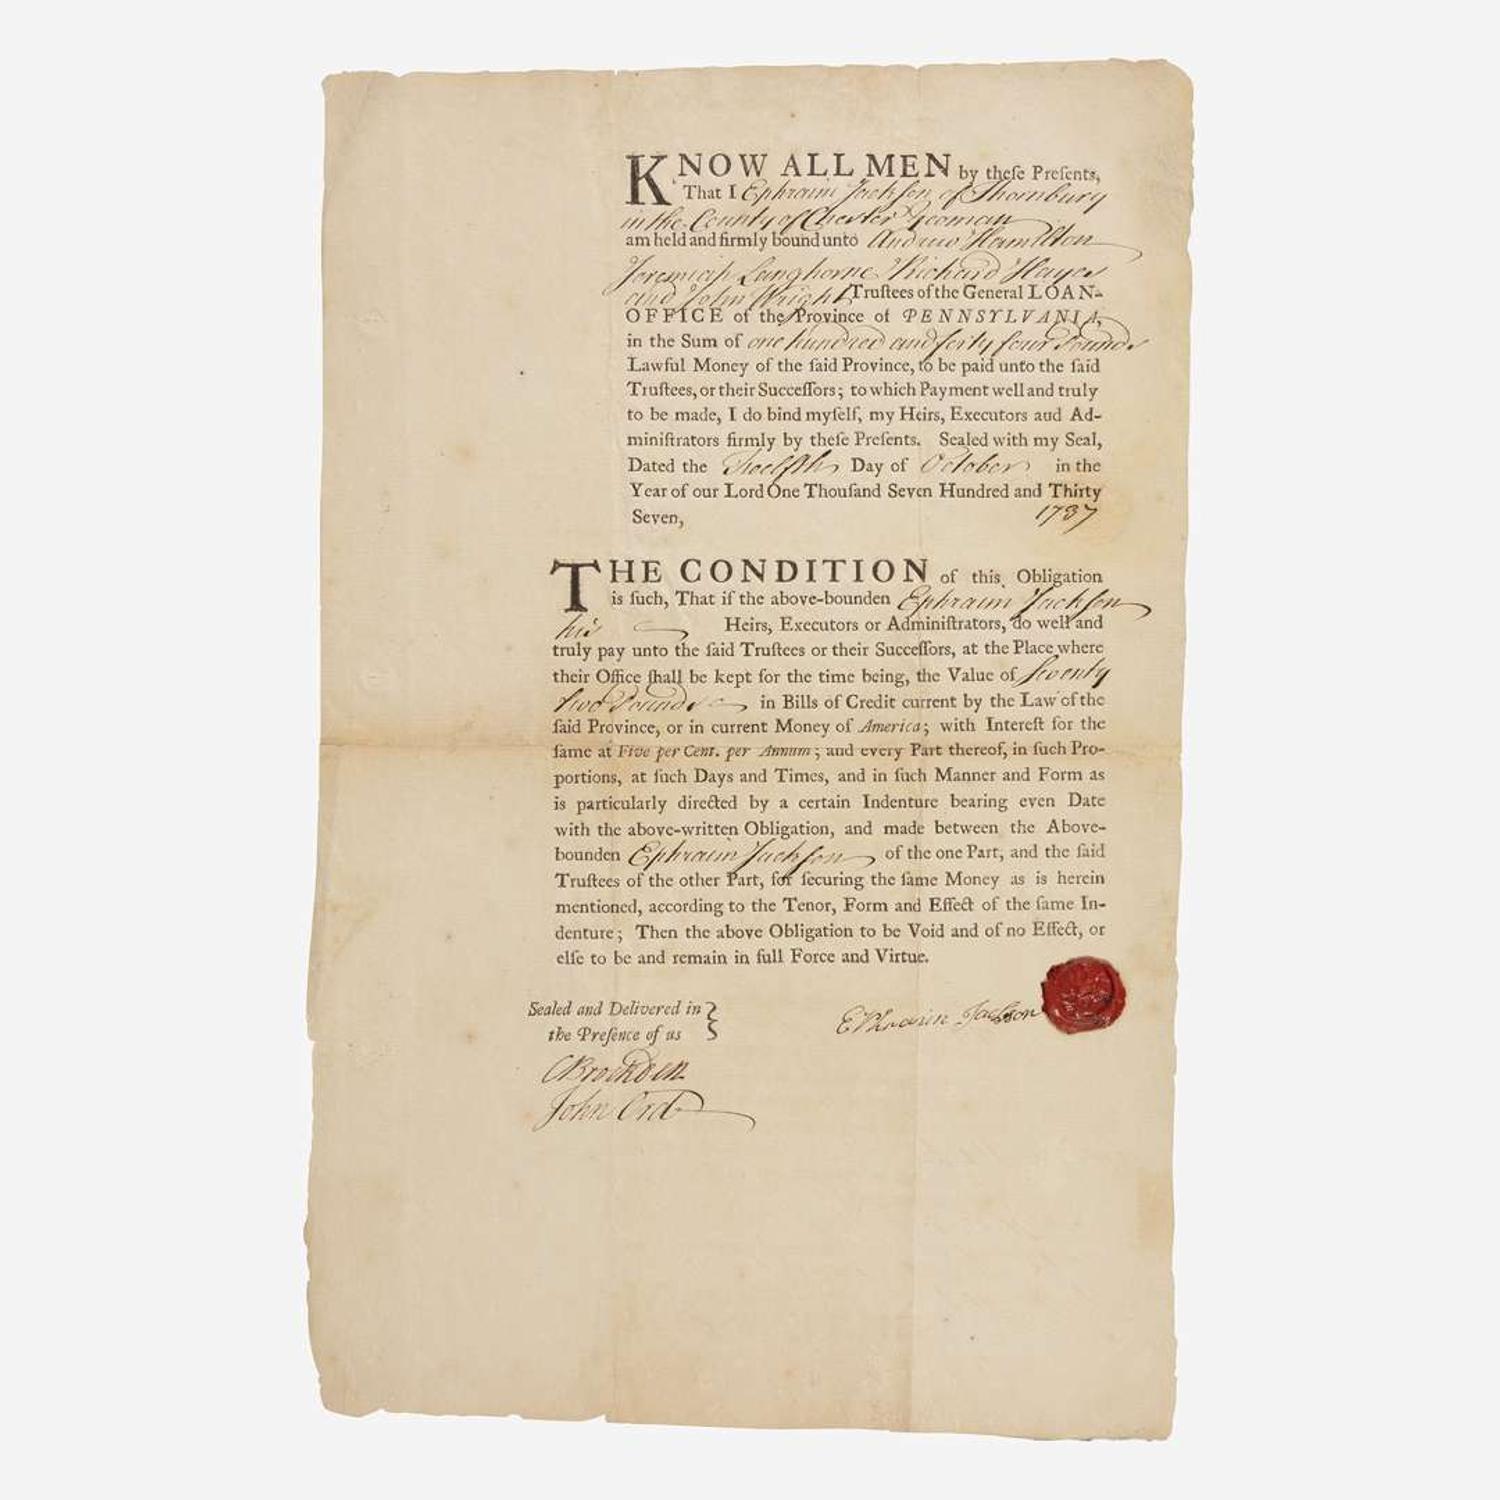 KNOW ALL MEN by theſe Preſents,
That I Ephraim Jackſon of Thornbury
in the County of Chester Yeoman
am held and firmly bound unto Andrew Hamilton
Jeremiah Langhorne Richard Hayes
and John Wright Truſtees of the General LOAN-
OFFICE of the Province of PENNSYLVANIA,
in the Sum of one hundred and forty four Pounds
Lawful Money of the ſaid Province, to be paid unto the ſaid
Truſtees, or their Succeſſors; to which Payment well and truly
to be made, I do bind myſelf, my Heirs, Executors aud Ad-
miniſtrators firmly by theſe Preſents. Sealed with my Seal,
Dated the Twelfth Day of October in the
Year of our Lord One Thouſand Seven Hundred and Thirty
Seven, 1737
THE CONDITION of this Obligation
is ſuch, That if the above-bounden Ephraim Jackſon
his Heirs, Executors or Adminiſtrators, do well and
truly pay unto the ſaid Truſtees or their Succeſſors, at the Place where
their Office ſhall be kept for the time being, the Value of Seventy
two Pounds in Bills of Credit current by the Law of the
ſaid Province, or in current Money of America; with Intereſt for the
ſame at Five per Cent. per Annum; and every Part thereof, in ſuch Pro-
portions, at ſuch Days and Times, and in ſuch Manner and Form as
is particularly directed by a certain Indenture bearing even Date
with the above-written Obligation, and made between the Above-
bounden Ephraim Jackſon of the one Part, and the ſaid
Truſtees of the other Part, for ſecuring the ſame Money as is herein
mentioned, according to the Tenor, Form and Effect of the ſame In-
denture; Then the above Obligation to be Void and of no Effect, or
elſe to be and remain in full Force and Virtue.
Sealed and Delivered in
the Preſence of us
Jackson
CBrockden
John Ord